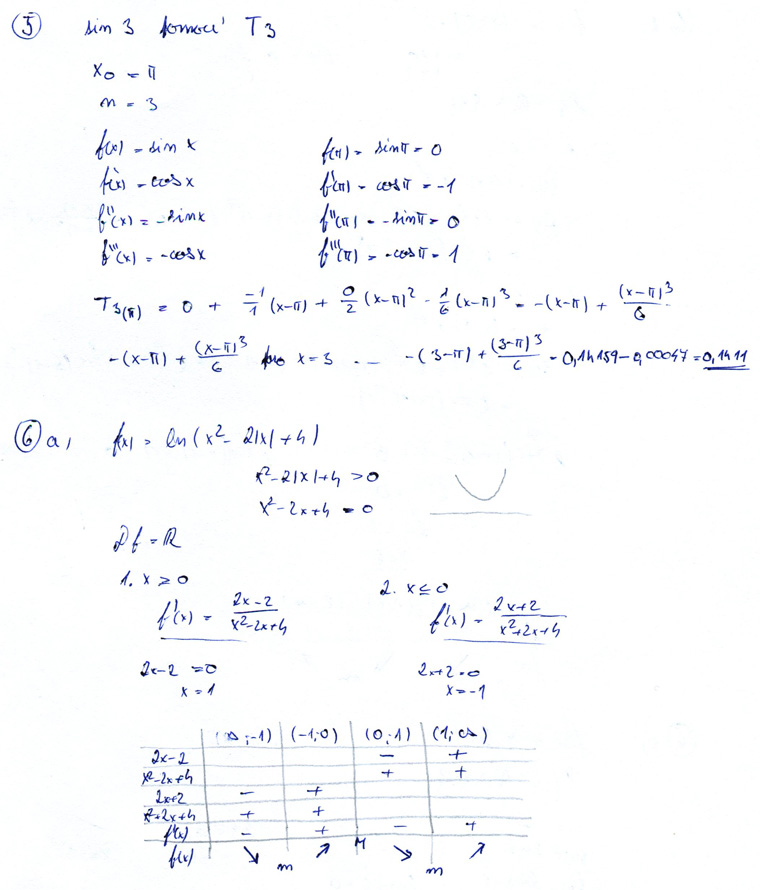 5 sin 3 pomocí T3
x0 = π
n = 3
f(x) = sin x f(π) = sin π = 0
f'(x) = cos x f'(π) = cos π = -1
f''(x) = -sin x f''(π) = -sin π = 0
f'''(x) = -cos x f'''(π) = -cos π = 1
T3(π) = 0 + -1/1 (x-π) + 0/2 (x-π)² - 1/6 (x-π)³ = -(x-π) + (x-π)³/6
-(x-π) + (x-π)³/6 pro x=3 ... -(3-π) + (3-π)³/6 = 0,14159 - 0,00047 = 0,1411
6 a, f(x) = ln(x² - 2|x| + 4)
x² - 2|x| + 4 > 0
x² - 2x + 4 = 0
Df = ℝ
1. x ≥ 0 2. x ≤ 0
f'(x) = 2x-2/x²-2x+4 f'(x) = 2x+2/x²+2x+4
2x-2 = 0 2x+2 = 0
x = 1 x = -1
(∞;-1) (-1;0) (0;1) (1;∞)
2x-2 - +
x²-2x+4 + +
2x+2 - +
x²+2x+4 + +
f'(x) - + - +
f(x) ↘ m ↗ M ↘ m ↗